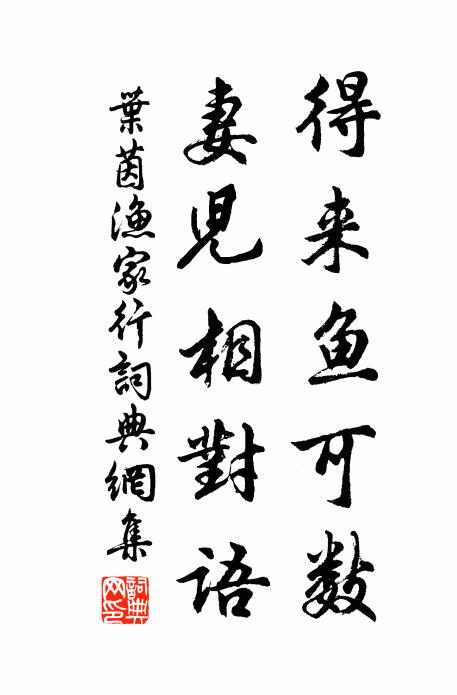 得来鱼可数
妻児相對語
葉茵漁家行詞典網集
詞典網印